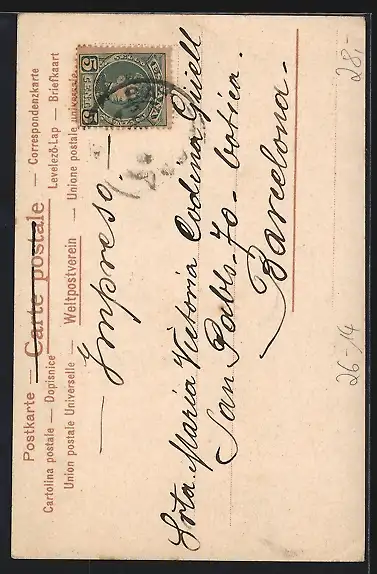 Postkarte — Carte postale — Correspondenzkarte
Cartolina postale — Dopisnice Levelező-Lap — Briefkaart
Union postale Universelle — Weltpostverein — Unione postale universale
5 5
— Impreso. —
Srta. Maria Victoria Codina Güell
San Pablo-70-botica.
Barcelona-
26-14
28,-